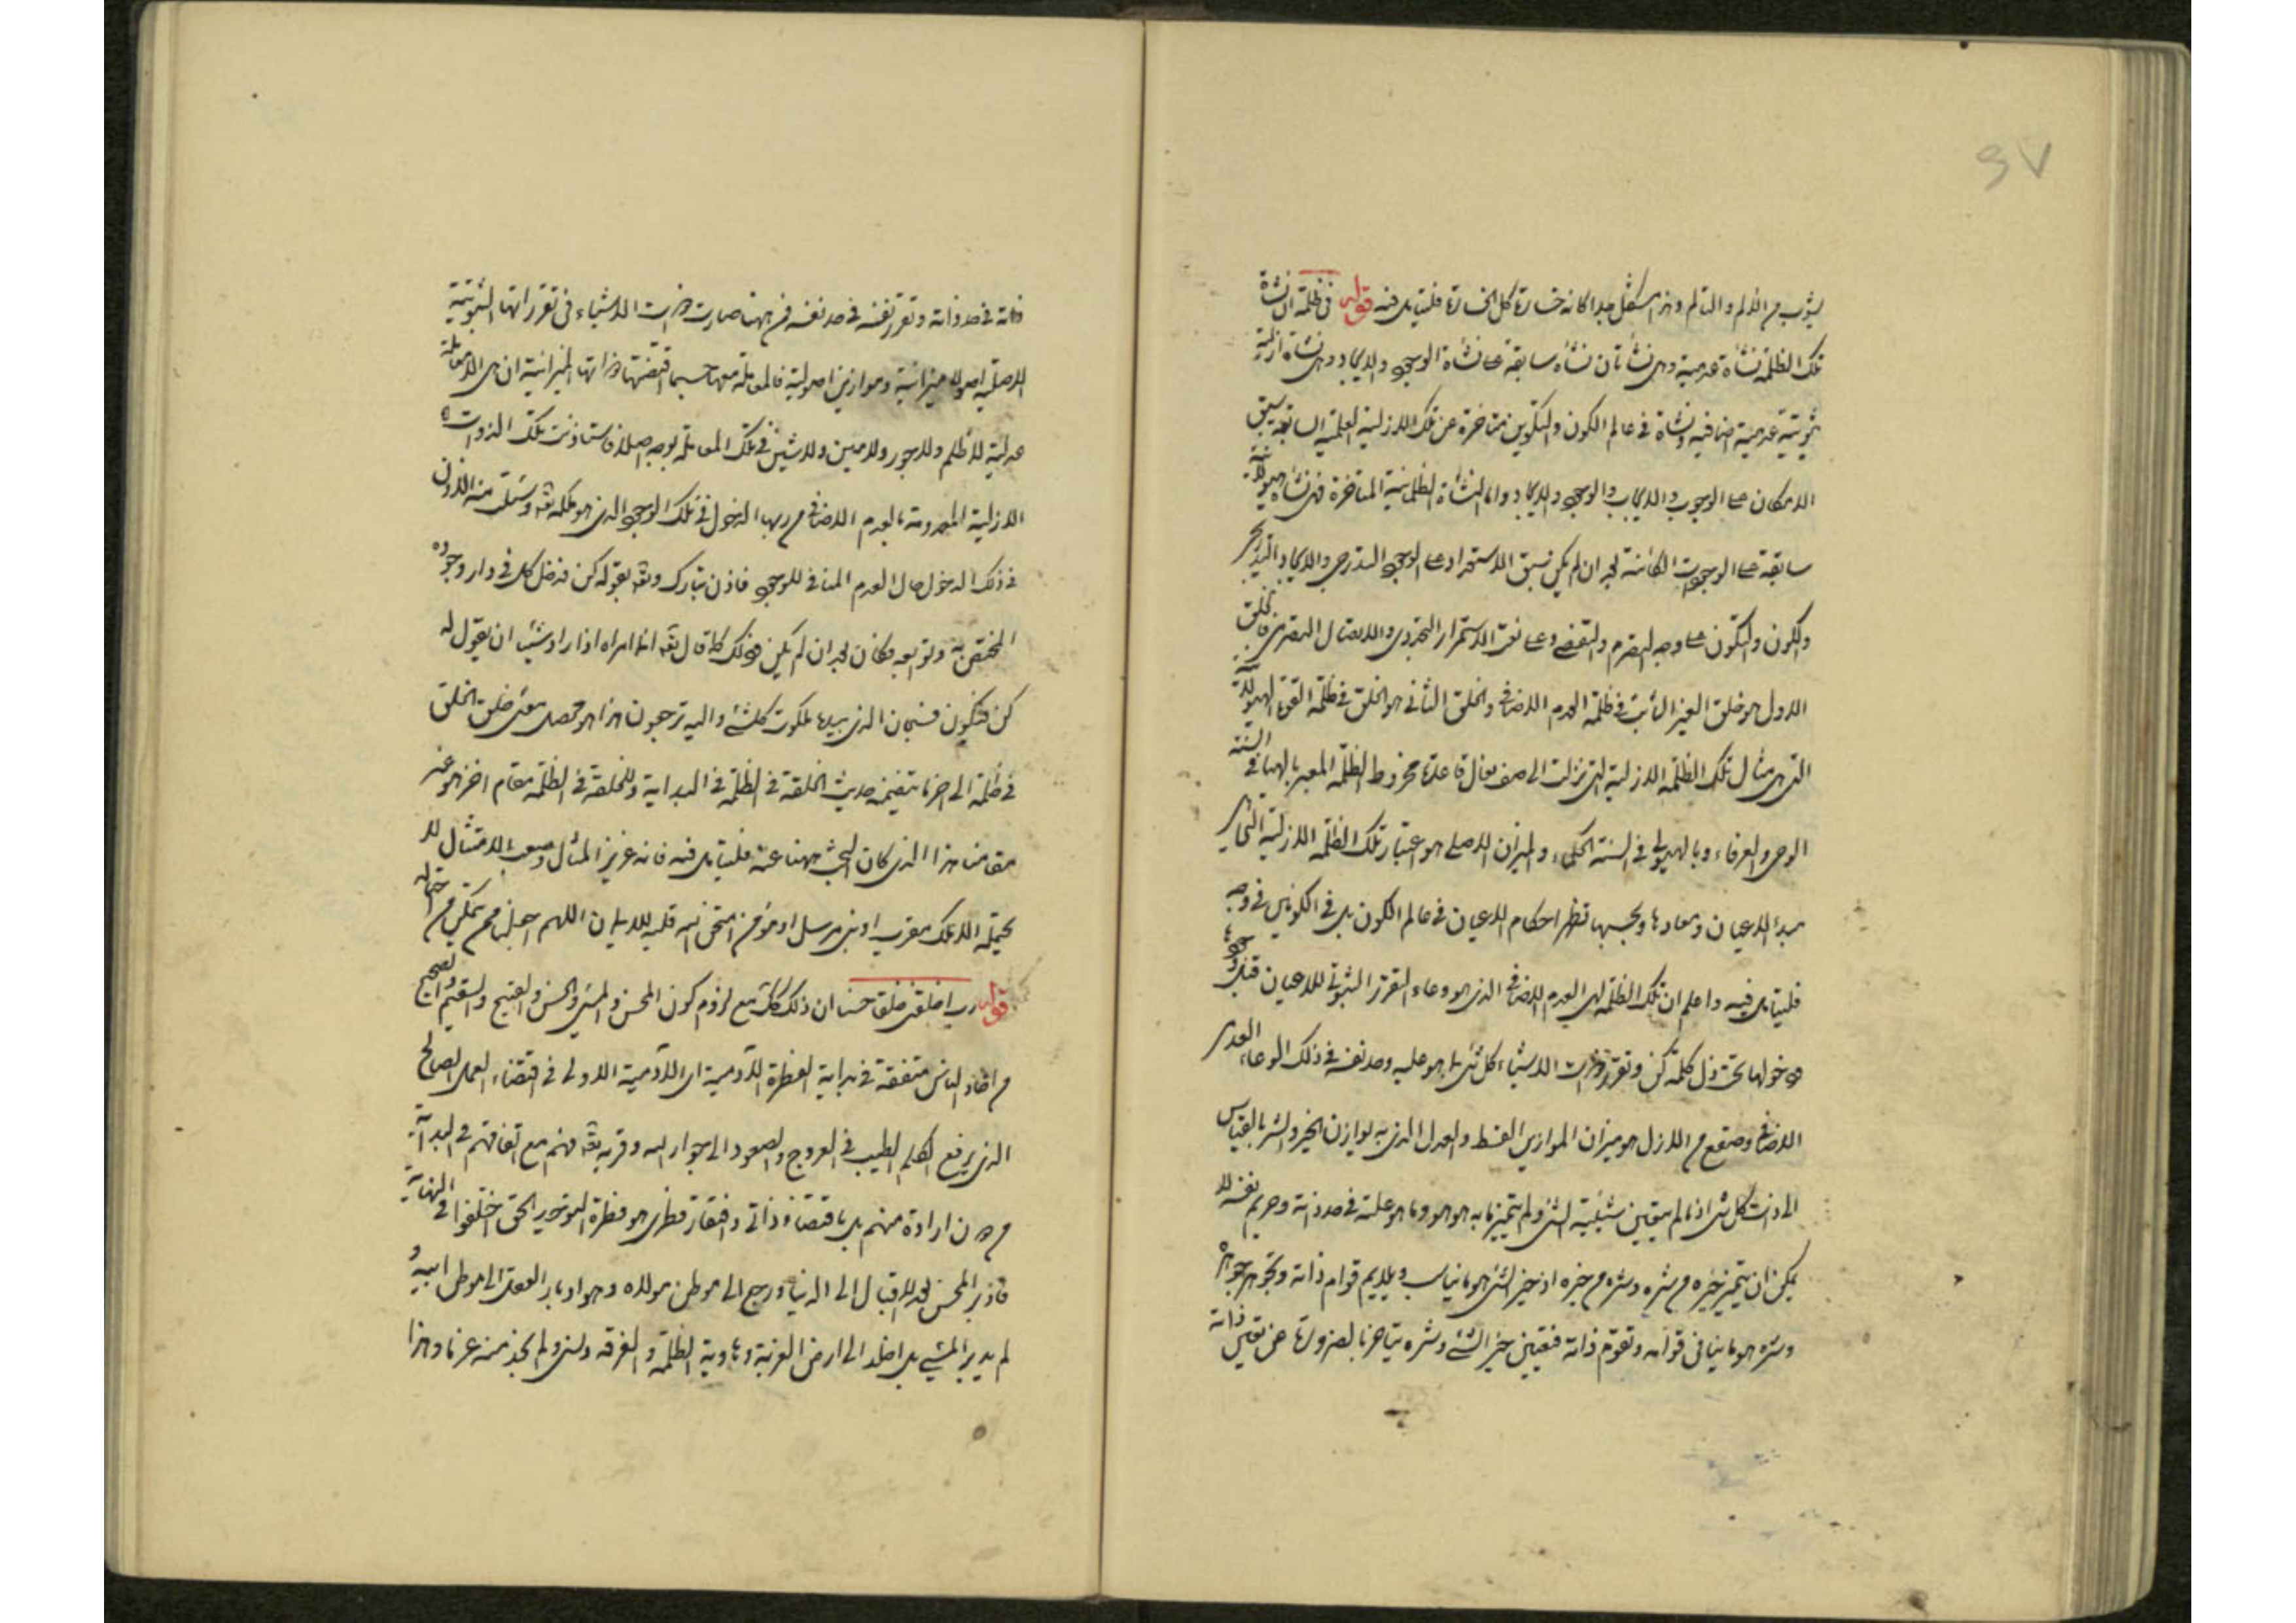 ٩٧
يثوب من الالم والتألم وهذا مبدا كانه خسارة كل الخسارة فليتأمل فيه قوله في ظلمة ان نشأة
تلك الظلمة نشأة عدمية وهي نشأتان نشأة سابقة على نشأة الوجود والايجاد وهي نشأة ازلية
ثبوتية عدمية اضافية ونشاة في عالم الكون والتكوين متاخرة عن تلك الازلية العلمية السابقة سبق
الامكان على الوجوب والايجاب والوجود والايجاد واما النشأة الظلمانية المتاخرة فهي نشأة هيولانية
سابقة على الوجودات الكائنة بعد ان لم يكن سبق الاستعداد على الوجود التدرجي والايجاد التدريجي
والكون والتكون على وجه التصرم والتقضي وعلى نعت الاستمرار التجددي والاتصال التصرمي فالخلق
الاول هو خلق العين الثابت في ظلمة العدم الاضافي والخلق الثاني هو الخلق في ظلمة القوة الهيولانية
التي هي مثال تلك الظلمة الازلية التي نزلت الى صف نعال قاعدة مخروط الظلمة المعبر بالهباء في السنة
الوحي والعرفاء وبالهيولى في السنة الحكماء والميزان الاصلي هو اعتبار تلك الظلمة الازلية التي هي
مبدأ الاعيان ومعادها وبحسبها تظهر احكام الاعيان في عالم الكون بل في الكونين في وجه
فليتأمل فيه واعلم ان تلك الظلمة اي العدم الاضافي الذي هو وعاء التقرر الثبوتي للاعيان قبل وجودها
ودخولها تحت ذل كلمة كن وتقرر ذوات الاشياء كل شئ بما هو عليه وحد نفسه في ذلك الوعاء العدمي
الاضافي وصقع من الازل هو ميزان الموازين القسط والعدل الذي به يوازن الخير والشر بالقياس
الى ذات كل شئ اذ ما لم يتعين شيئية الشئ ولم يتميز ما به هو هو وما هو عليه في حد ذاته وحريم نفسه لا
يمكن ان يتميز خيره من شره وشره من خيره اذ خير الشئ هو ما يناسب ويلايم قوام ذاته وتجوهر جوهره
وشره هو ما ينافي قوامه وتقوم ذاته فتعين خير الشئ وشره يتاخر بالضرورة عن تعين ذاته
ذاته في حد ذاته وتقرر نفسه في حد نفسه فمن ههنا صارت ذوات الاشياء في تقرراتها الثبوتية
الاصلية اصولا ميزانية وموازين اصولية فالمعاملة معها حسبما اقتضتها ذواتها الميزانية ان هي الا معاملة
عدلية لا ظلم ولا جور ولا مين ولا شين في تلك المعاملة بوجه اصلا فاستاذنت تلك الذوات
الازلية المعدومة بالعدم الاضافي من ربها الدخول في تلك الوجود الذي هو ملكه تعالى وسئلت منه الاذن
في ذلك الدخول حال العدم المنافي للوجود فاذن تبارك وتعالى بقوله كن فدخل كل في دار وجوده
المختص به وتوابعه فكان بعد ان لم يكن وذلك كما قال تعالى انما امره اذا اراد شيئا ان يقول له
كن فيكون فسبحان الذي بيده ملكوت كل شئ واليه ترجعون هذا هو محصل معنى خلق الخلق
في ظلمة الى اخر ما تضمنه حديث الخلقة في الظلمة في البداية وللخلقة في الظلمة مقام اخر هو غير
مقامنا هذا الذي كان البحث ههنا عنه فليتأمل فيه فانه عزيز المنال وصعب الامتثال لا
يحتمله الا ملك مقرب او نبي مرسل او مؤمن امتحن الله قلبه للايمان اللهم اجعلنا ممن تمكن من احتماله
قوله رب اخلقني خلقا حسنا ان ذلك كذلك مع لزوم كون المحسن والمسئ والحسن والقبيح والسقيم والصحيح
من افراد الناس متفقة في بداية الفطرة الآدمية اي الآدمية الاولى في اقتضاء العمل الصالح
الذي يرفع الكلم الطيب في العروج والصعود الى جوار الله وقربه تعالى فهم مع اتفاقهم في البداية
من دون ارادة منهم بل باقتضاء ذاتي وافتقار فطري هو فطرة التوحيد الحق اختلفوا في النهاية
فادبر المحسن بعد الاقبال الى الدنيا ورجع الى موطن مولده وهو ادبار العقل الى موطن ابيه و
لم يدبر المسئ بل اخلد الى ارض الغربة وهاوية الظلمة والفرقة ونسي ولم نجد منه عزما وهذا